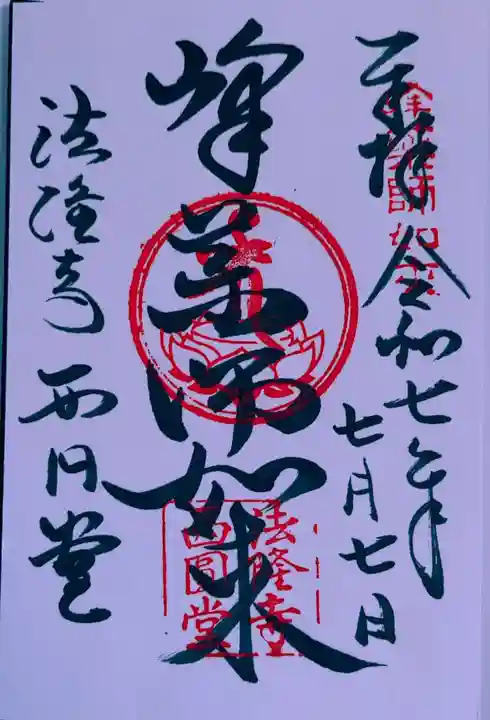 奉拝 令和七年
七月七日
峰薬師如来
法隆寺 西円堂
峯薬師如来
法隆寺
西圓堂